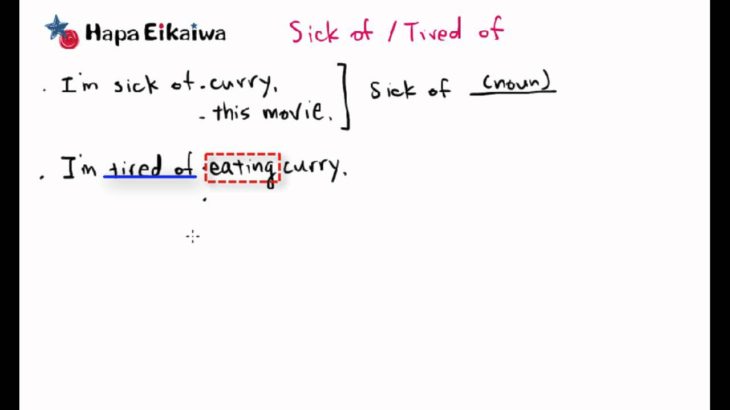 Hapa Eikaiwa Sick of / Tired of
. I'm sick of . curry. ] Sick of (noun)
- this movie.
. I'm tired of . eating curry.
.